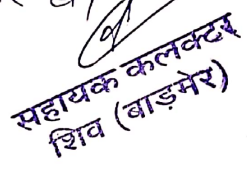 सहायक कलक्टर
शिव (बाड़मेर)